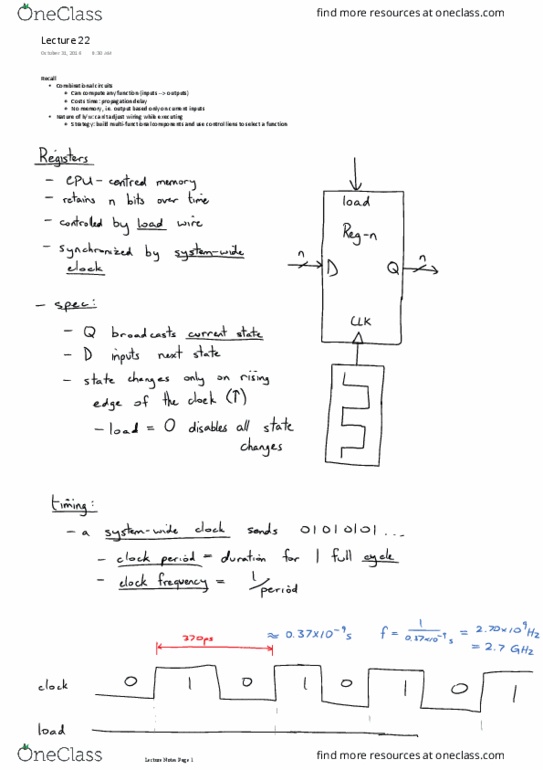 OneClass
find more resources at oneclass.com
Lecture 22
October 31, 2014 8:30 AM
Recall
• Combinational circuits
• Can compute any function (inputs --> outputs)
• Costs time: propagation delay
• No memory, i.e. output based only on current inputs
• Nature of h/w: can't adjust wiring while executing
• Strategy: build multi-functional components and use control lines to select a function
Registers
- CPU-centred memory
- retains n bits over time
- controled by load wire
- synchronized by system-wide
clock
load
Reg-n
n
D
Q
n
CLK
- spec:
- Q broadcasts current state
- D inputs next state
- state changes only on rising
edge of the clock (↑)
- load = 0 disables all state
changes
timing:
- a system-wide clock sends 01010101...
- clock period = duration for 1 full cycle
- clock frequency = 1/period
370ps
≈ 0.37×10⁻⁹s
f = 1/0.37×10⁻⁹s = 2.70×10⁹Hz
= 2.7 GHz
clock
0 1 0 1 0 1 0 1
load
OneClass
Lecture Notes Page 1
find more resources at oneclass.com